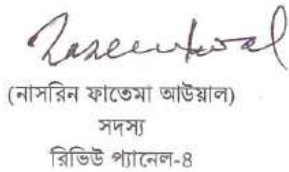 (নাসরিন ফাতেমা আউয়াল)
সদস্য
রিভিউ প্যানেল-৪